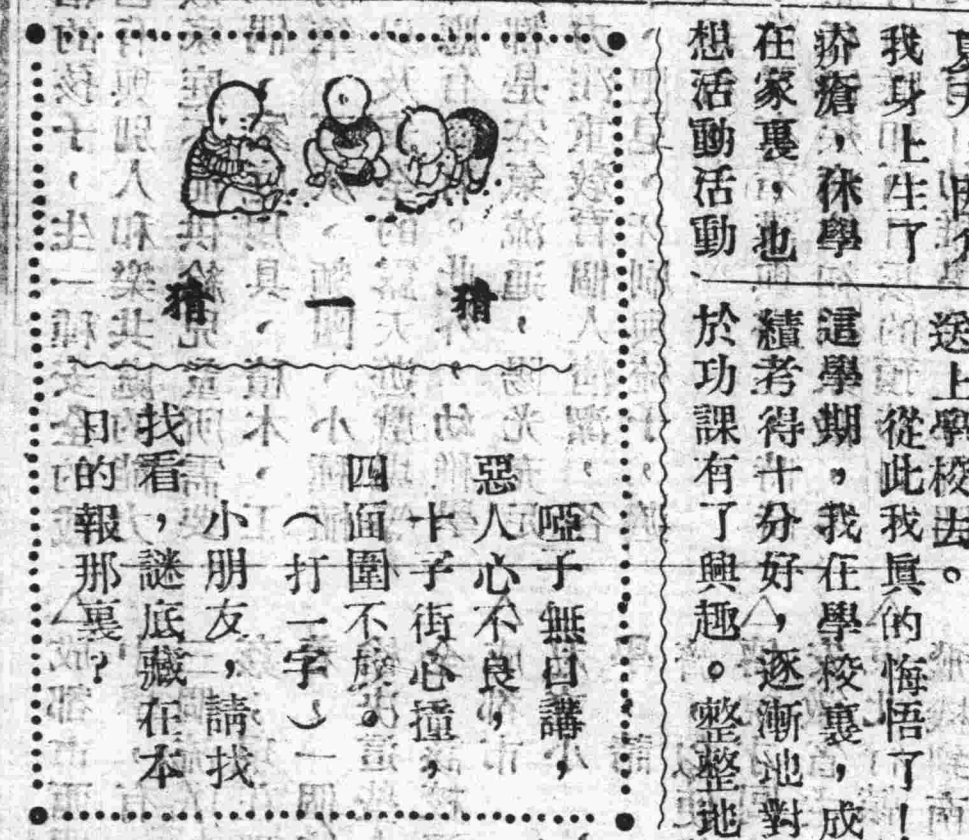 夏天，因
我身上生了
疥瘡，休學
在家裏，也
想活動活動
送上學校去。
從此我眞的悔悟了！
這學期，我在學校裏，成
績考得十分好，逐漸地對
於功課有了興趣。整整地
猜一猜
啞子無口講，
惡人心不良，
十子街心撞，
四面圍不放。
（打一字）
小朋友，請找
找看，謎底藏在本
日的報那裏？